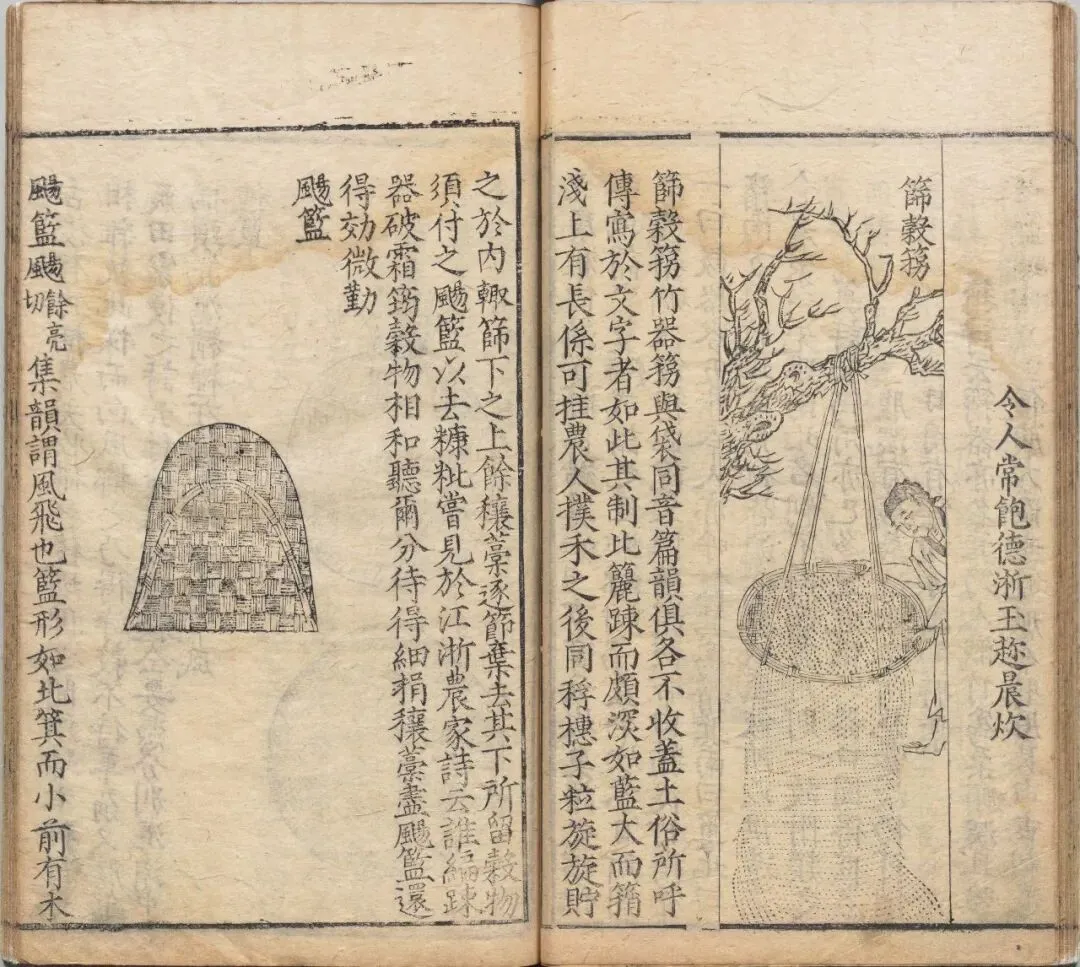 令人常飽德浙玉趂晨炊
篩穀筹
篩穀筹竹器筹與袋同音篇韻俱各不收蓋土俗所呼
傳寫於文字者如此其制比簏踈而頗深如藍大而筲
淺上有長係可挂農人撲禾之後同稃穗子粒旋旋貯
之於内輙篩下之上餘穰藁逐節棄去其下所留穀物
須付之颺籃以去糠粃嘗見於江浙農家詩云誰編踈
器破霜筠穀物相和聽爾分待得細捐穰藁盡颺籃還
得効微勤
颺籃
颺籃颺餘亮切集韻謂風飛也籃形如北箕而小前有木